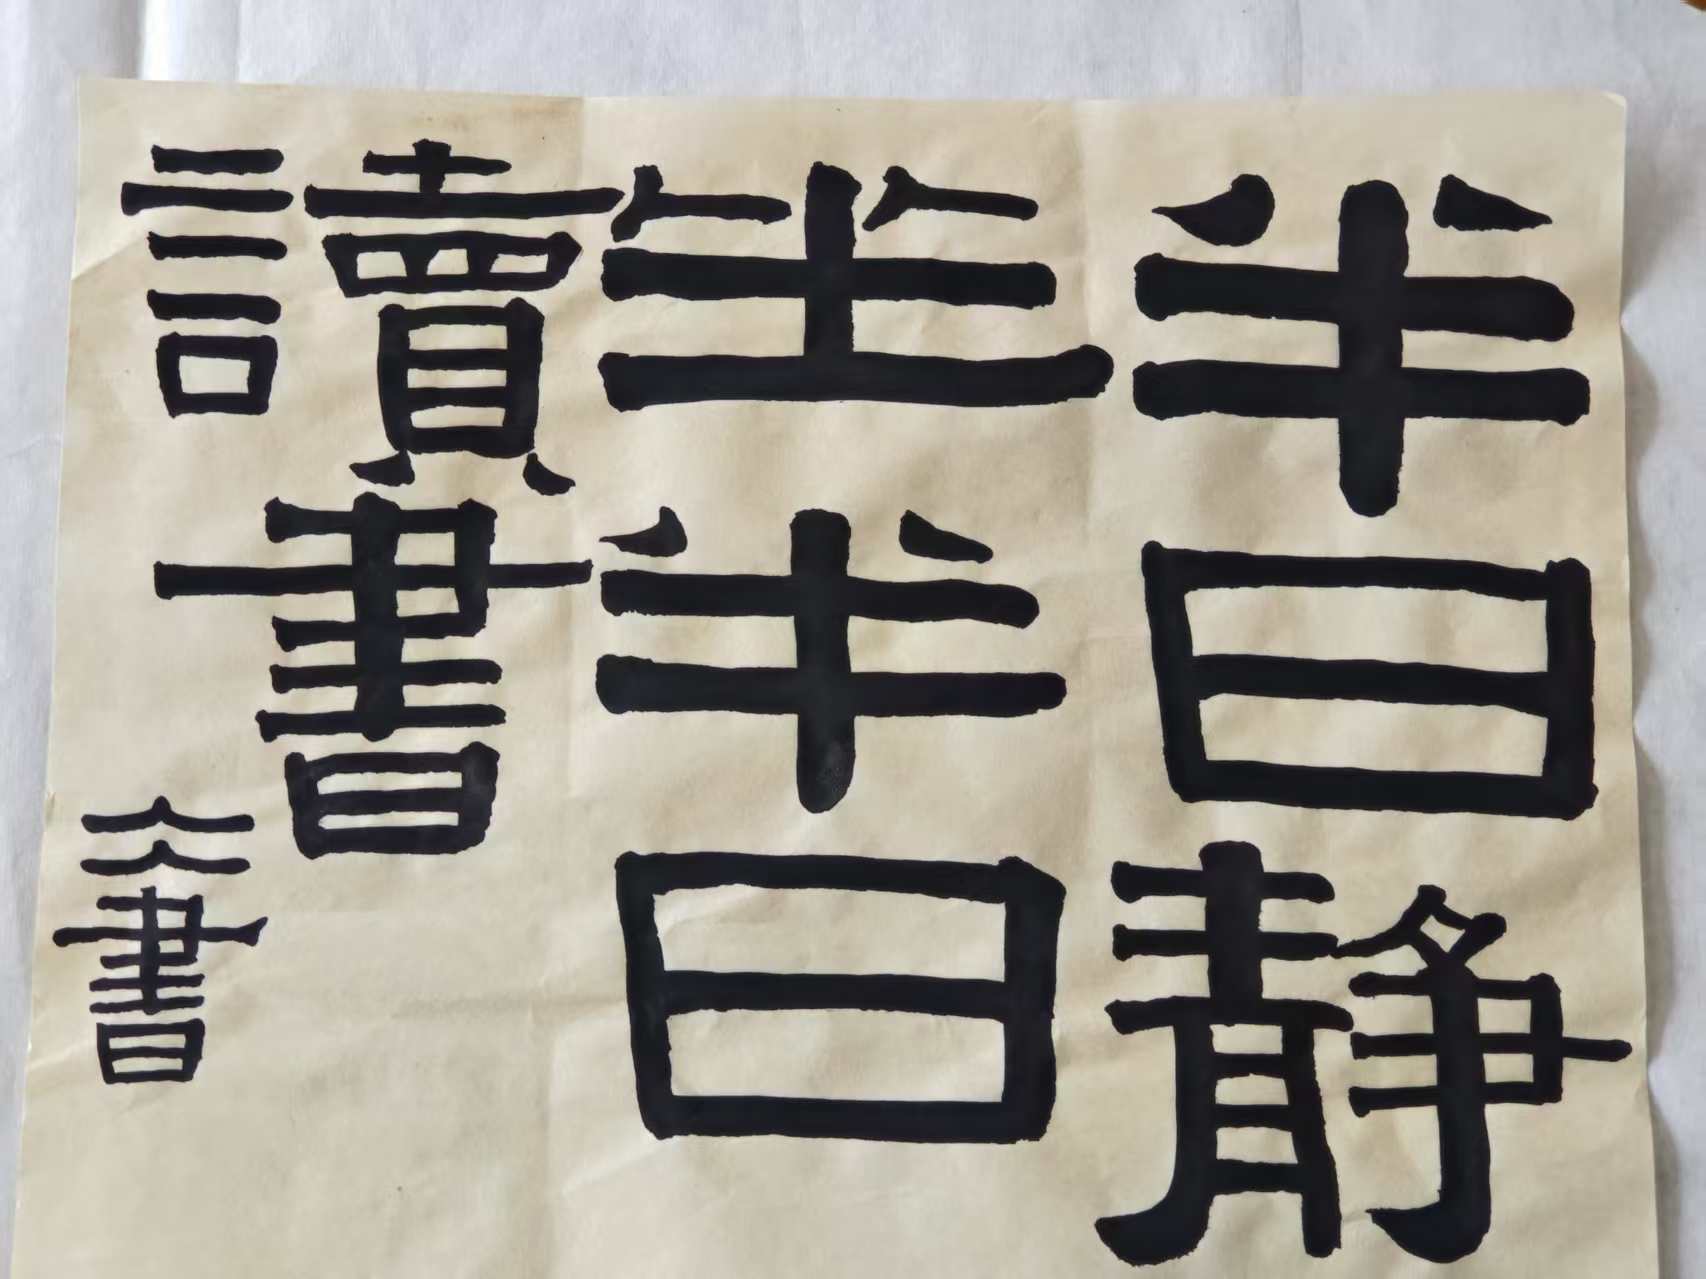 半日静
坐半日
讀書
書